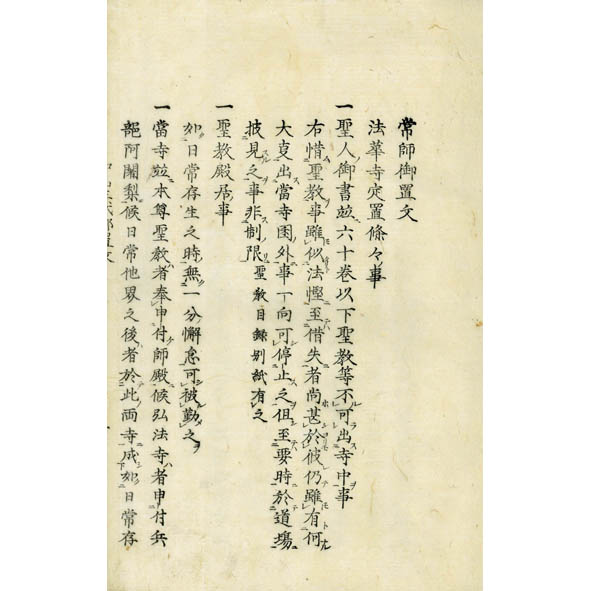 常師御置文
法華寺定置條々事
一聖人御書並六十卷以下聖教等不可出寺中事
右惜聖教事雖似法慳至借失者尚甚於彼仍雖有何
大事出當寺圈外事一向可停止之但至要時於道場
披見之事非制限聖教目録別紙有之
一聖教殿居事
如日常存生之時無一分懈怠可被勤之
一當寺並本尊聖教者奉申付師殿候弘法寺者申付兵
部阿闍梨候日常他界之後者於此兩寺成如日常存